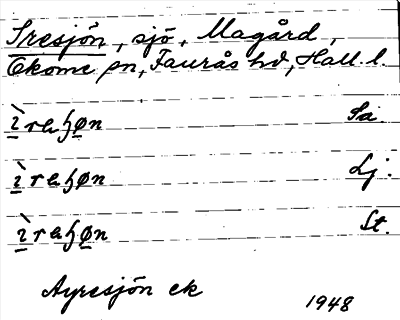 Iresjön, sjö, Magård,
Ekome sn, Faurås hd, Hall. l.
ı̀reɧøn Sa.
ı̀reɧøn Lj.
ı̀reɧøn St.
Ayresjön ek
1948